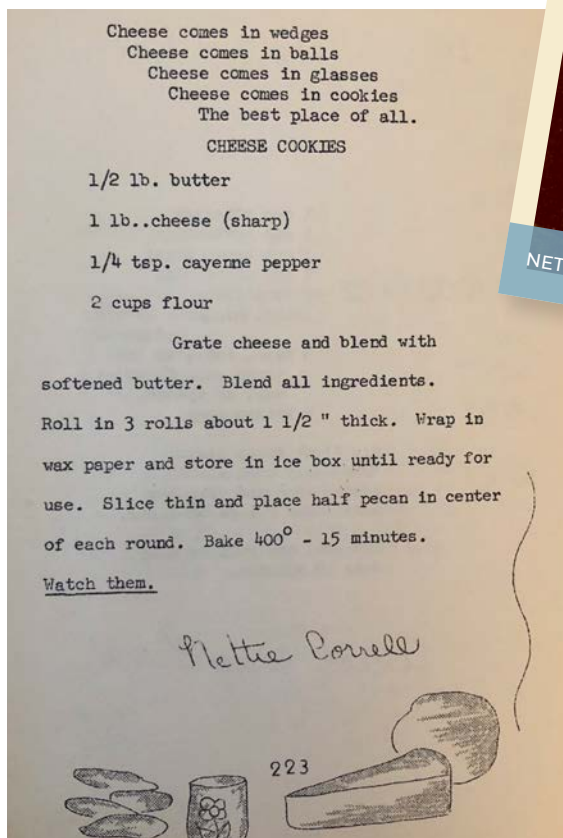 Cheese comes in wedges
Cheese comes in balls
Cheese comes in glasses
Cheese comes in cookies
The best place of all.
CHEESE COOKIES
1/2 lb. butter
1 lb..cheese (sharp)
1/4 tsp. cayenne pepper
2 cups flour
Grate cheese and blend with
softened butter. Blend all ingredients.
Roll in 3 rolls about 1 1/2 " thick. Wrap in
wax paper and store in ice box until ready for
use. Slice thin and place half pecan in center
of each round. Bake 400° - 15 minutes.
Watch them.
Nettie Correll
223
NET